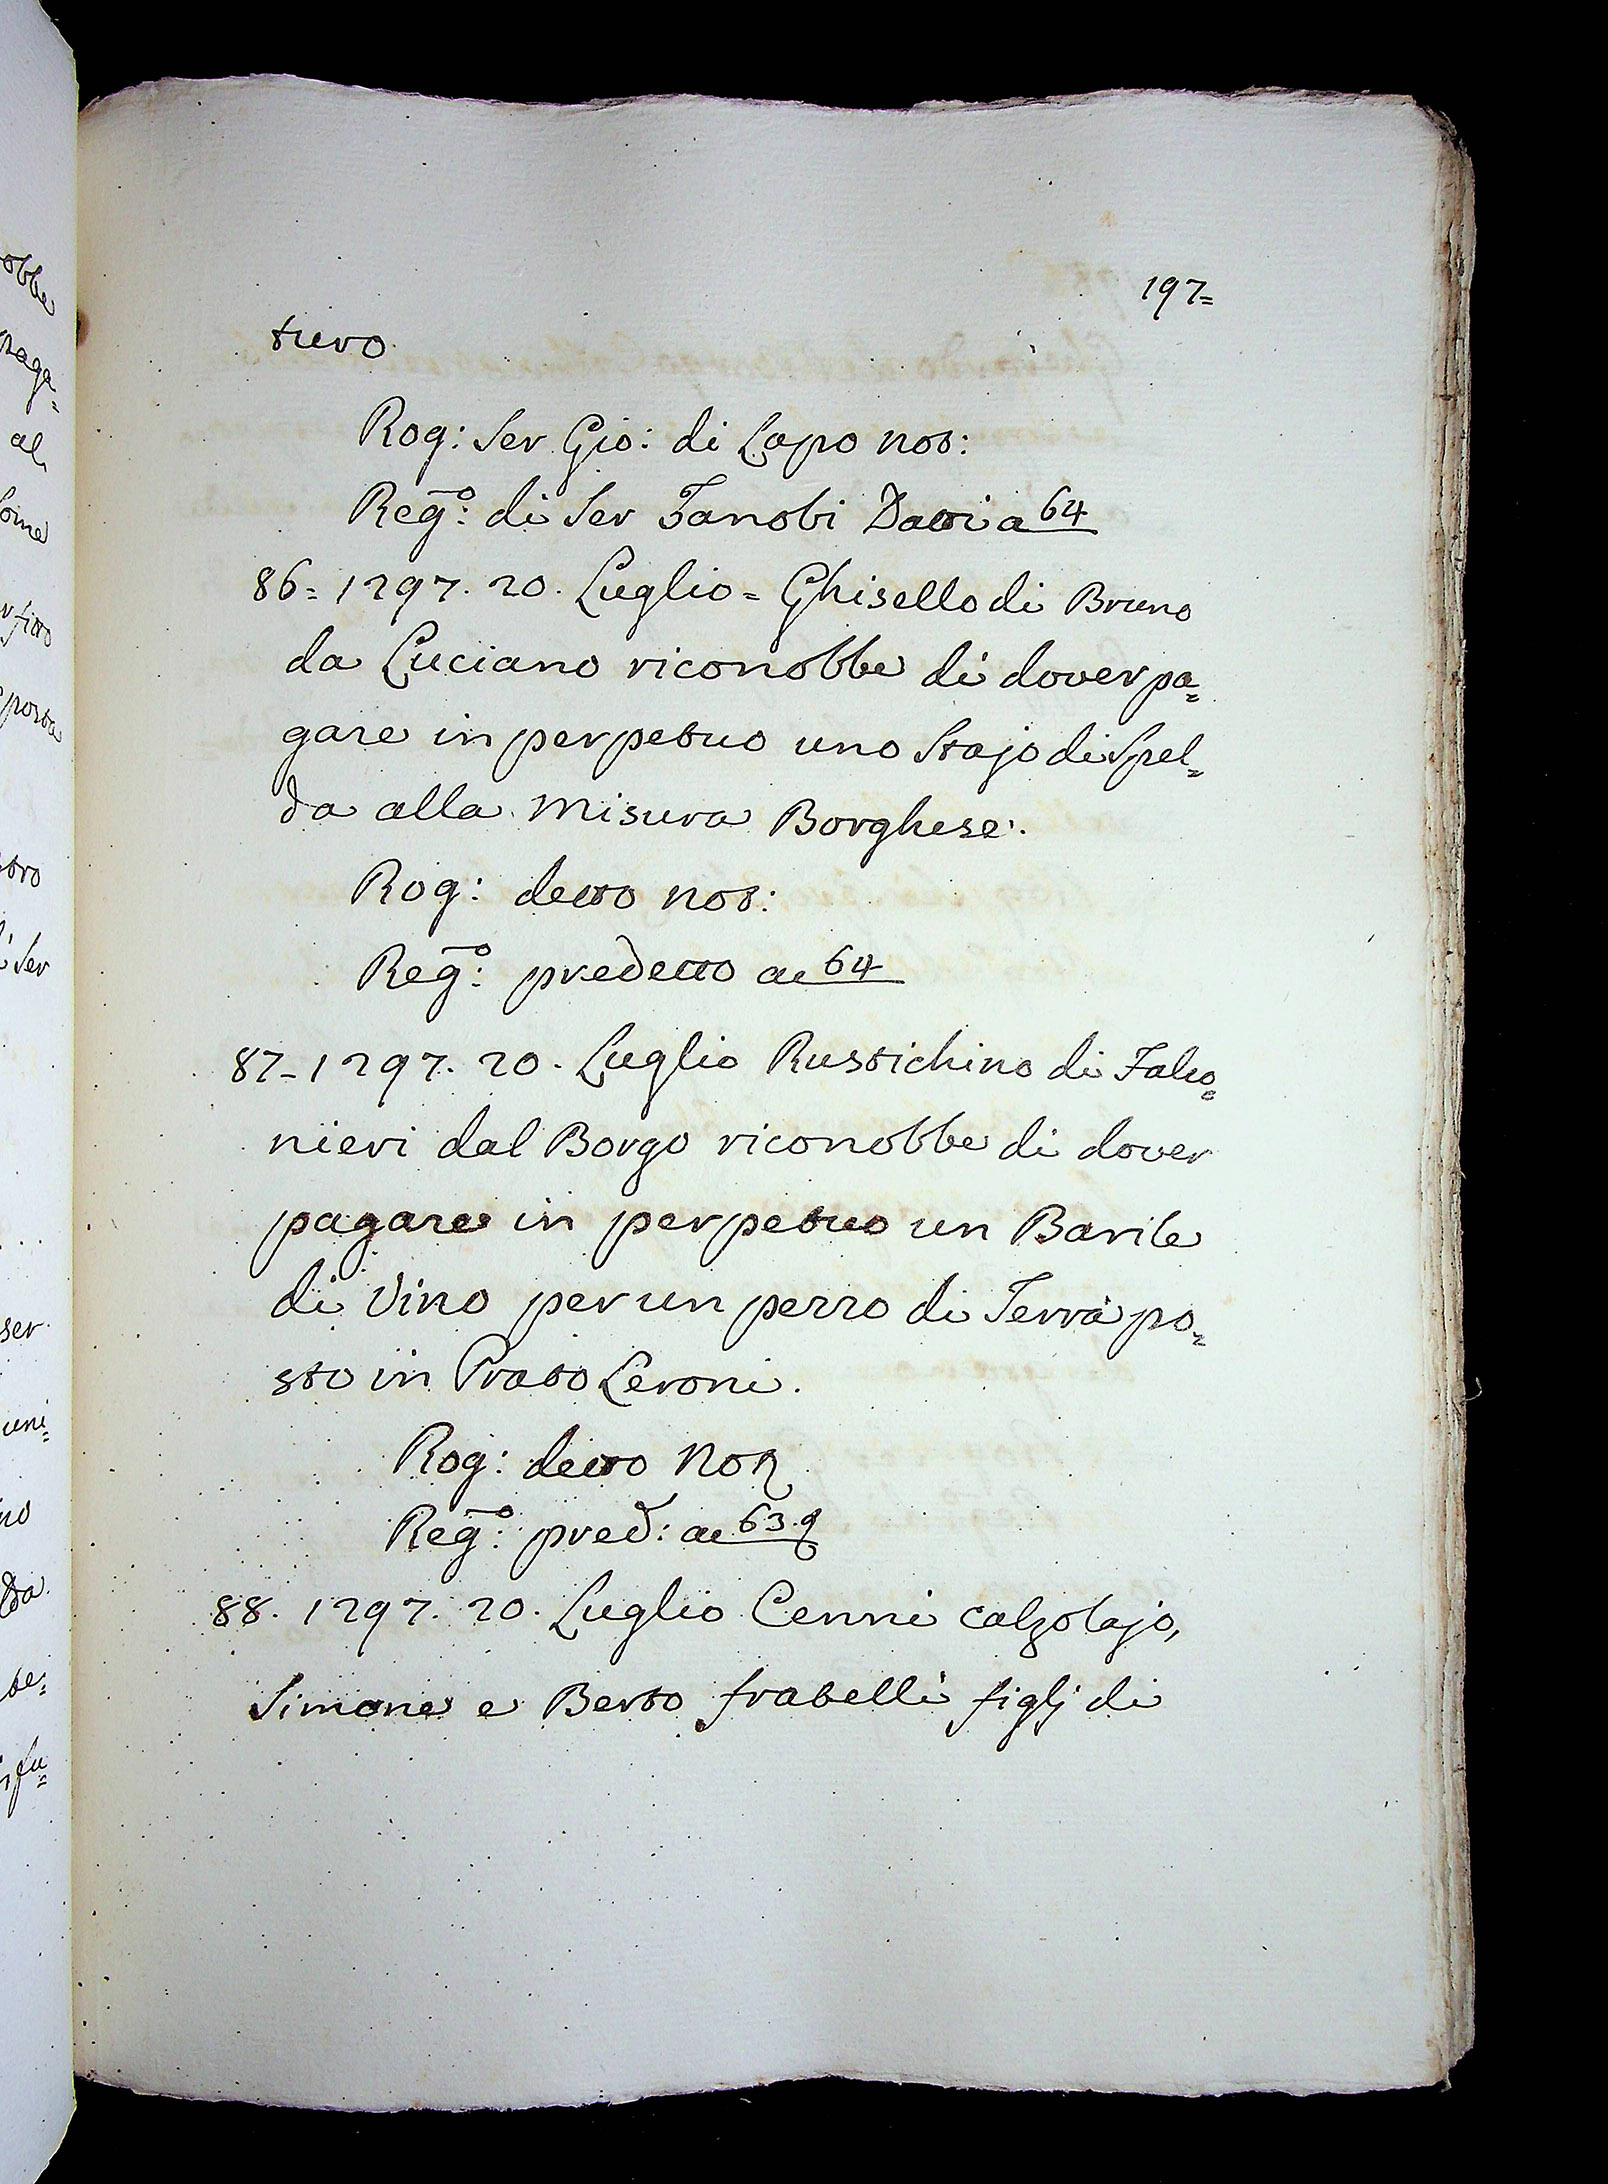 197=
turo
Rog: Ser Gio: di Lapo not:
Reg.º: di Ser Zanobi Datti a 64
86= 1297. 20. Luglio = Ghisello di Bruno
da Luciano riconobbe di dover pa=
gare in perpetuo uno Stajo di Spel=
da alla Misura Borghese.
Rog: detto not:
Reg.º: predetto ac 64
87- 1297. 20. Luglio Rustichino di Falco=
nieri dal Borgo riconobbe di dover
pagare in perpetuo un Barile
di Vino per un pezzo di Terra po=
sto in Prato Leroni.
Rog: detto Not
Reg.º: pred: ac 63.
88. 1297. 20. Luglio Cenni calzolajo,
Simone e Berto fratelli figlj di